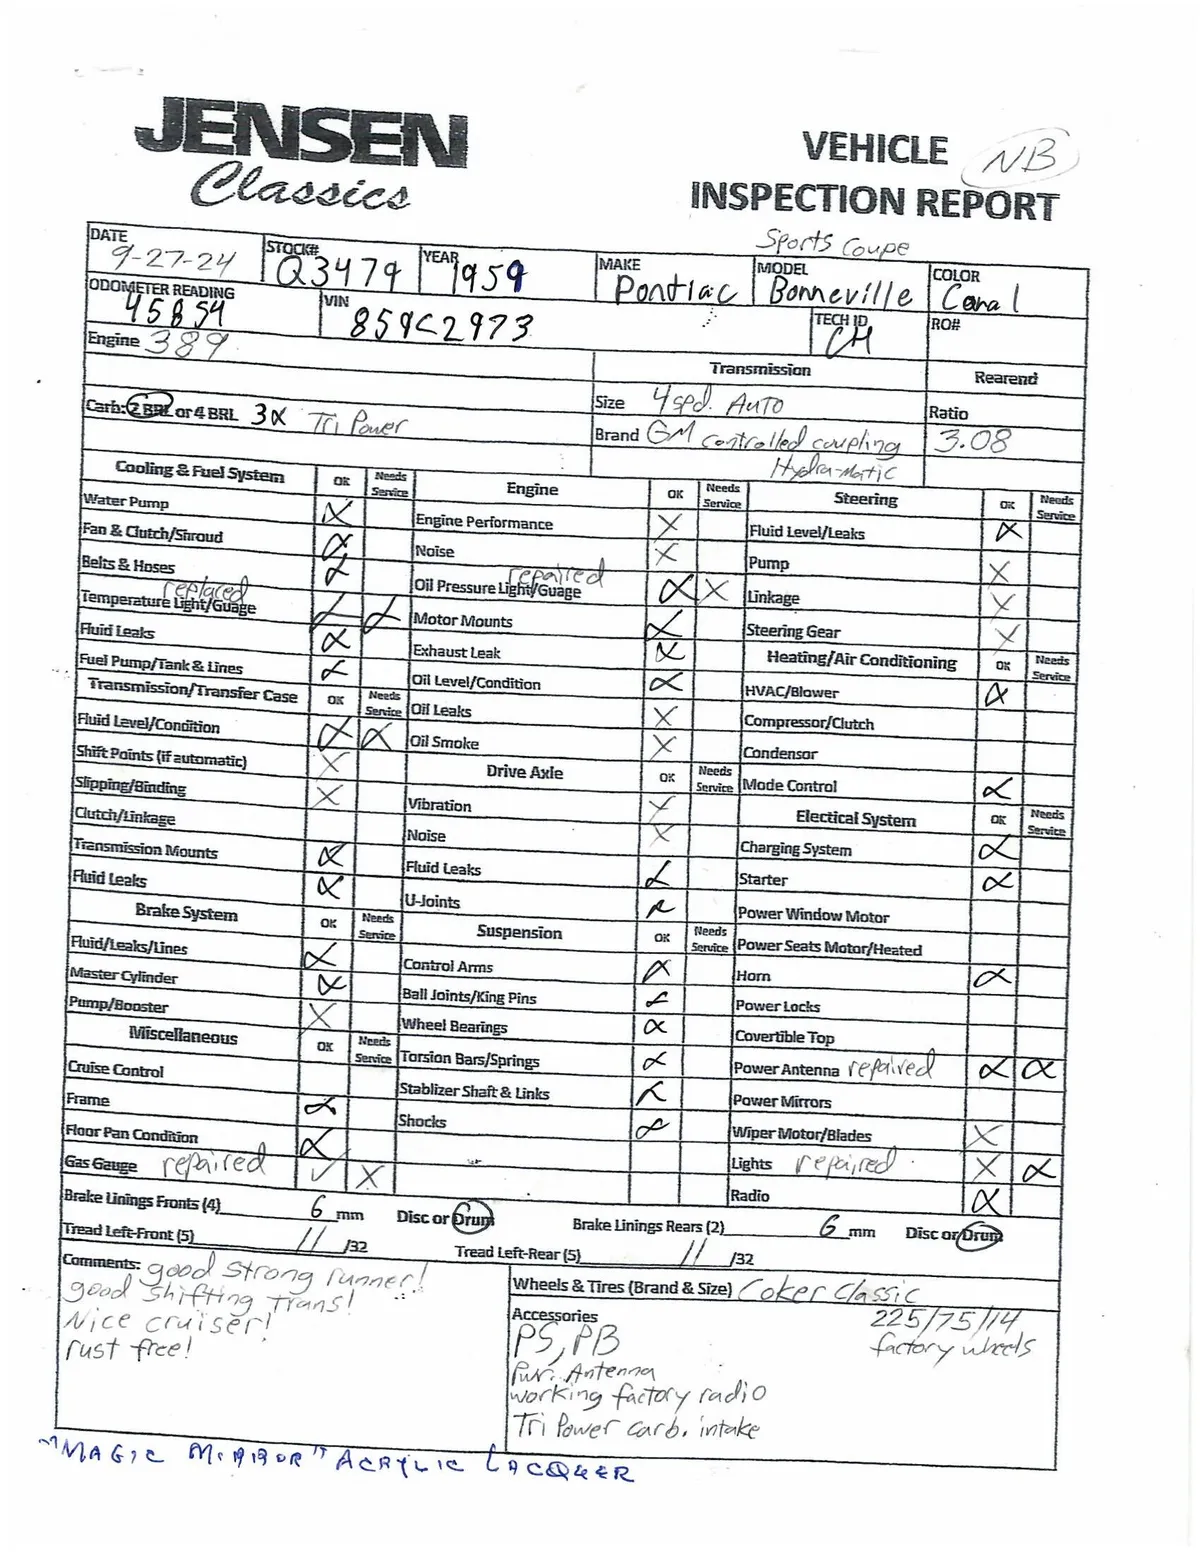 JENSEN
Classics
VEHICLE NB
INSPECTION REPORT
Sports Coupe
DATE 9-27-24 STOCK# Q3479 YEAR 1959 MAKE Pontiac MODEL Bonneville COLOR Canal
ODOMETER READING 45854 VIN 859C2973 TECH ID CH RO#
Engine 389 Transmission Rearend
Carb: 2 BRL or 4 BRL 3X Tri Power Size 4spd. Auto Ratio 3.08
Brand GM controlled coupling
Hydra-matic
Cooling & Fuel System OK Needs Service
Water Pump X
Fan & Clutch/Shroud X
Belts & Hoses X
replaced
Temperature Light/Guage X X
Fluid Leaks X
Fuel Pump/Tank & Lines X
Transmission/Transfer Case OK Needs Service
Fluid Level/Condition X X
Shift Points (if automatic) X
Slipping/Binding X
Clutch/Linkage
Transmission Mounts X
Fluid Leaks X
Brake System OK Needs Service
Fluid/Leaks/Lines X
Master Cylinder X
Pump/Booster X
Miscellaneous OK Needs Service
Cruise Control
Frame X
Floor Pan Condition X
Gas Gauge repaired ✓ X
Engine OK Needs Service
Engine Performance X
Noise X
repaired
Oil Pressure Light/Guage X X
Motor Mounts X
Exhaust Leak X
Oil Level/Condition X
Oil Leaks X
Oil Smoke X
Drive Axle OK Needs Service
Vibration X
Noise X
Fluid Leaks X
U-Joints X
Suspension OK Needs Service
Control Arms X
Ball Joints/King Pins X
Wheel Bearings X
Torsion Bars/Springs X
Stablizer Shaft & Links X
Shocks X
Steering OK Needs Service
Fluid Level/Leaks X
Pump X
Linkage X
Steering Gear X
Heating/Air Conditioning OK Needs Service
HVAC/Blower X
Compressor/Clutch
Condensor
Mode Control X
Electical System OK Needs Service
Charging System X
Starter X
Power Window Motor
Power Seats Motor/Heated
Horn X
Power Locks
Covertible Top
Power Antenna repaired X X
Power Mirrors
Wiper Motor/Blades X
Lights repaired X X
Radio X
Brake Linings Fronts (4) 6 mm Disc or Drum Brake Linings Rears (2) 6 mm Disc or Drum
Tread Left-Front (5) 11 /32 Tread Left-Rear (5) 11 /32
Comments: good strong runner!
good shifting trans!
Nice cruiser!
rust free!
Wheels & Tires (Brand & Size) Coker Classic
225/75/14
factory wheels
Accessories
PS, PB
Pwr. Antenna
working factory radio
Tri Power carb. intake
"MAGIC MIRROR" ACRYLIC LACQUER